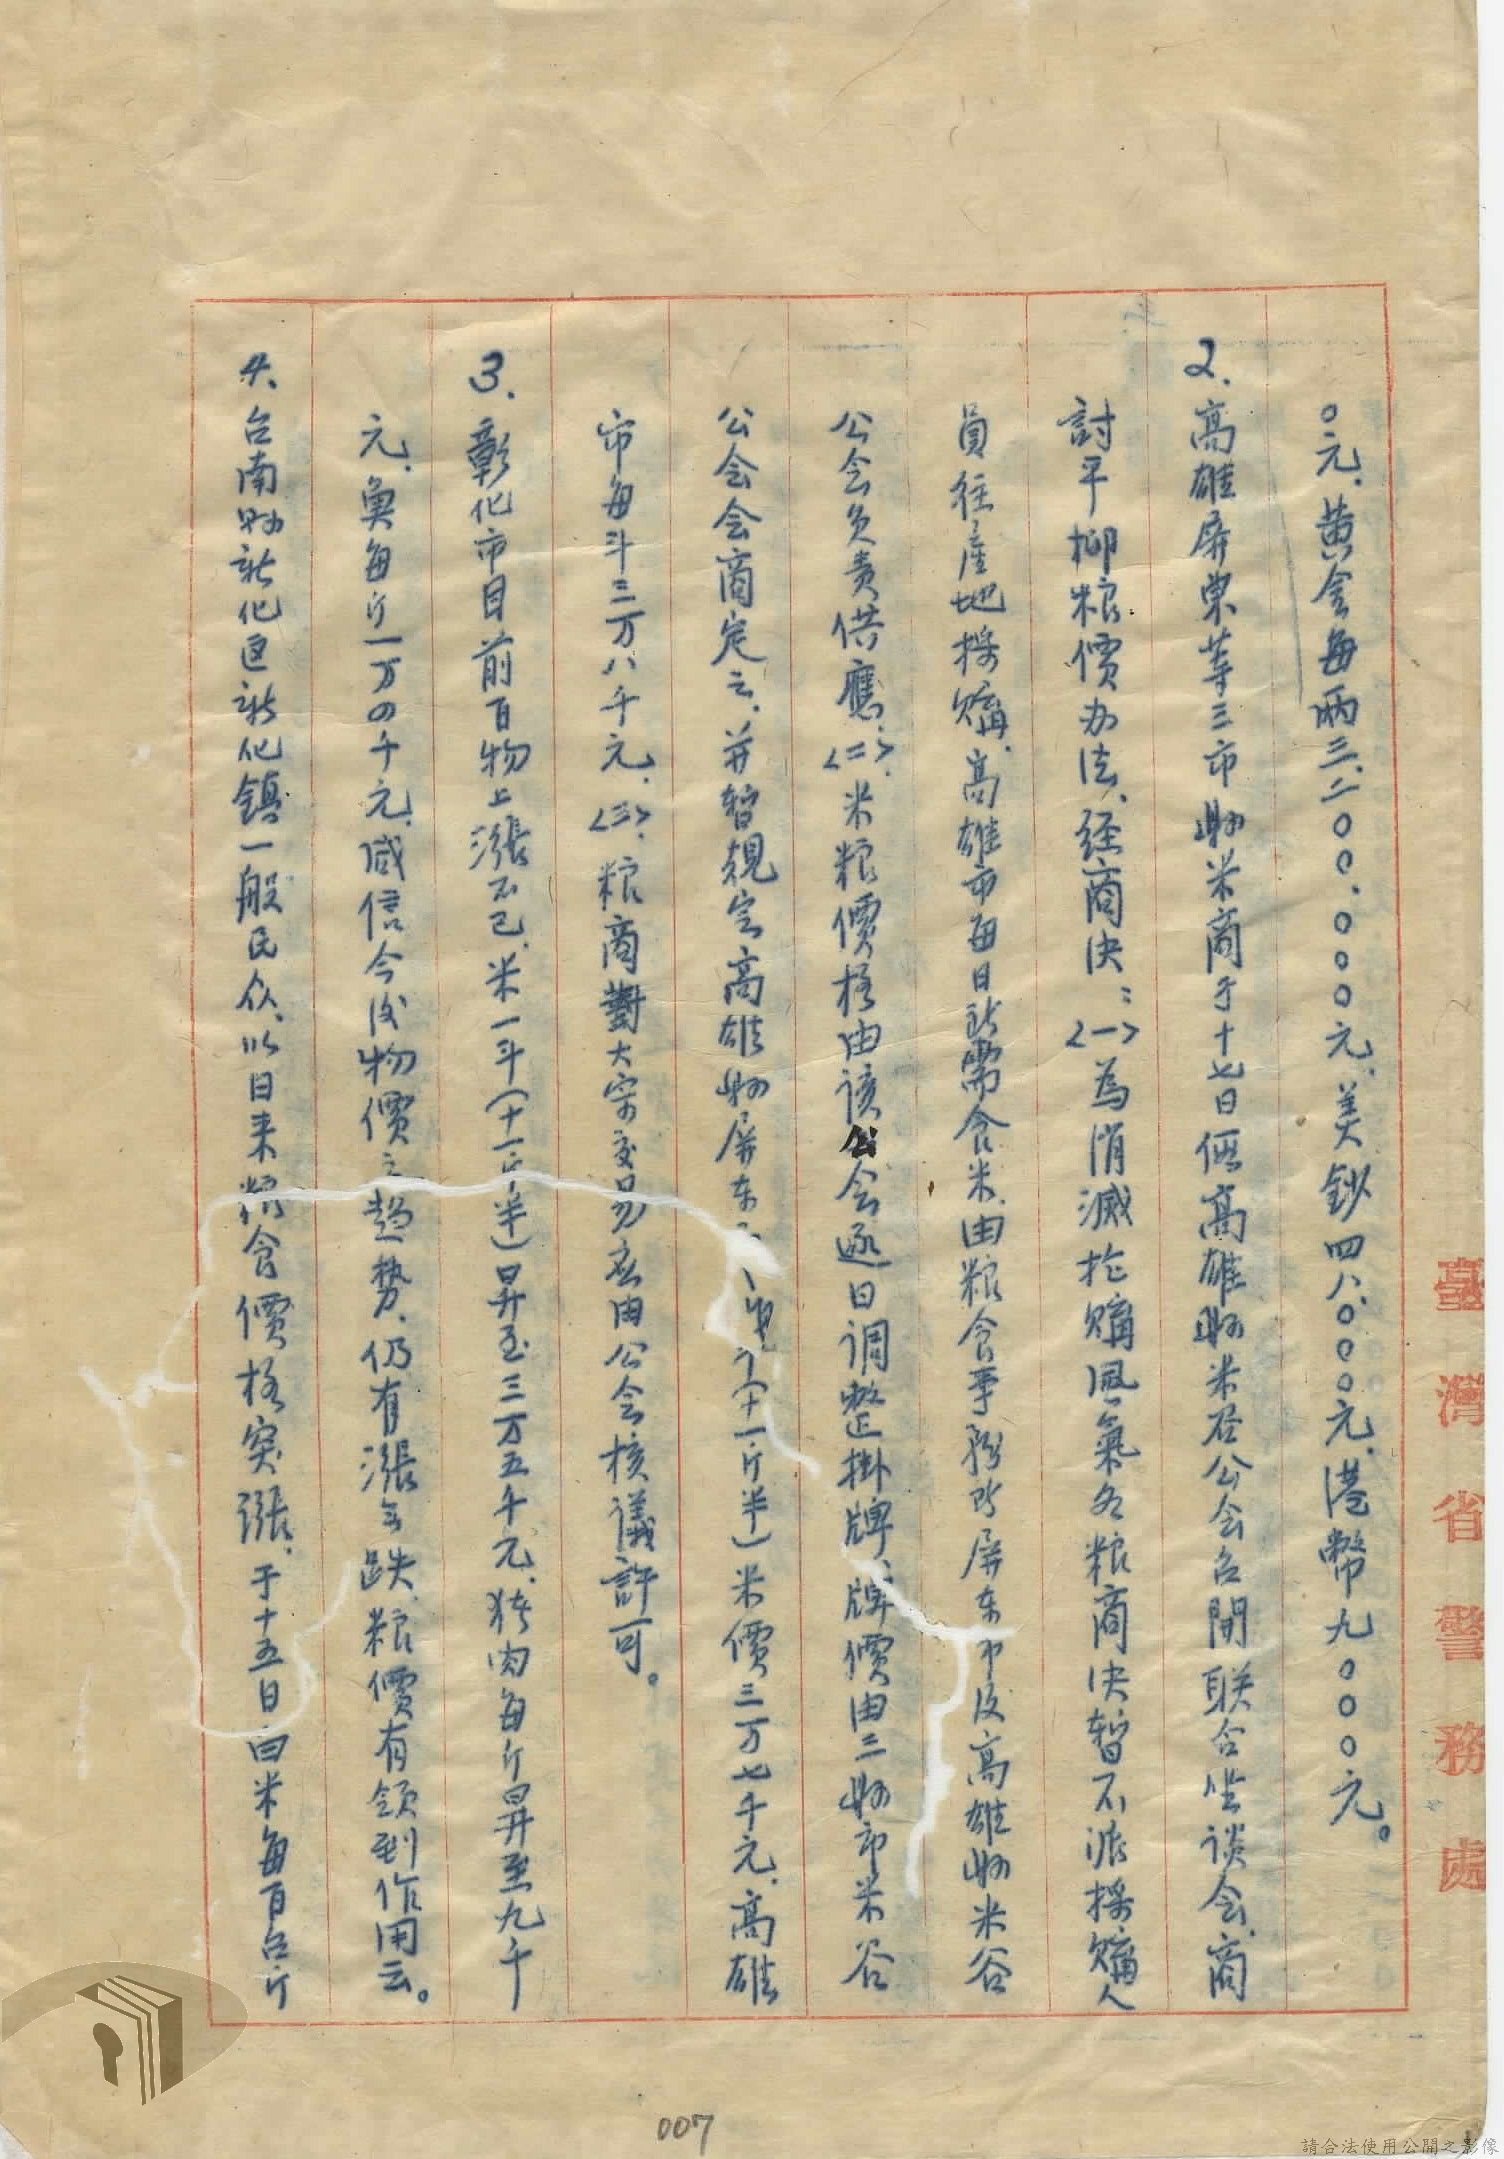 〇元、黄金每両三、二〇〇、〇〇〇元、美鈔四八、〇〇〇元、港幣九〇〇〇元。
2. 高雄屏東等三市縣米商于十七日假高雄縣米谷公会召開联合坐谈会、商
討平抑粮價办法、经商决：<一>為消滅抢購風氣各粮商决暂不派採購人
員往產地採購、高雄市每日所需食米、由粮食事務所屏东市及高雄縣米谷
公会负责供應、<二>、米粮價格由该公会逐日调整掛牌、牌價由三縣市米谷
公会会商定之、并暂規定高雄縣屏东 斗(十一斤半)米價三万七千元、高雄
市每斗三万八千元、<三>、粮商對大宗交易应由公会核議許可。
3. 彰化市目前百物上漲不已、米一斗(十一斤半)昇至三万五千元、猪肉每斤昇至九千
元、魚每斤一万四千元、咸信今後物價之趋势、仍有漲无跌、粮價有领到作用云。
4. 台南縣新化区新化鎮一般民众、以日来粮食價格突漲、于十五日白米每百台斤
臺灣省警務處
007
請合法使用公開之影像